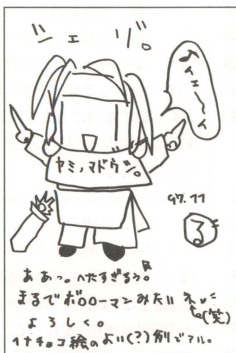 シェゾ。
イェーイ
ヤミノマドウシ。
97.11
ああっ。へたすぎるゾ。
まるでボ○○ーマンみたい
(笑)
よろしく。
イナチョコ絵のよい(?)例でアル。